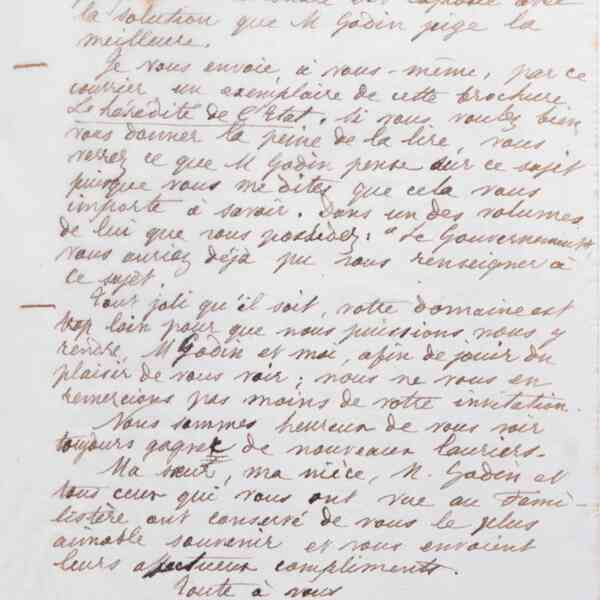 la solution que M Godin juge la
meilleure.
Je vous envoie à vous-même, par ce
courrier un exemplaire de cette brochure
L'hérédité de l'Etat. Si vous voulez bien
vous donner la peine de la lire, vous
verrez ce que M Godin pense sur ce sujet
puisque vous me dites que cela vous
importe à savoir. Dans un des volumes
de lui que vous possédez : "Le Gouvernement"
vous auriez déjà pu vous renseigner à
ce sujet.
Tout joli qu'il soit, votre domaine est
trop loin pour que nous puissions nous y
rendre, M Godin et moi, afin de jouir du
plaisir de vous voir ; nous ne vous en
remercions pas moins de votre invitation.
Nous sommes heureux de vous voir
toujours gagner de nouveaux lauriers.
Ma sœur, ma nièce, M. Godin et
tous ceux qui vous ont vue au Fami-
listère ont conservé de vous le plus
aimable souvenir et vous envoient
leurs affectueux compliments.
Toute à vous